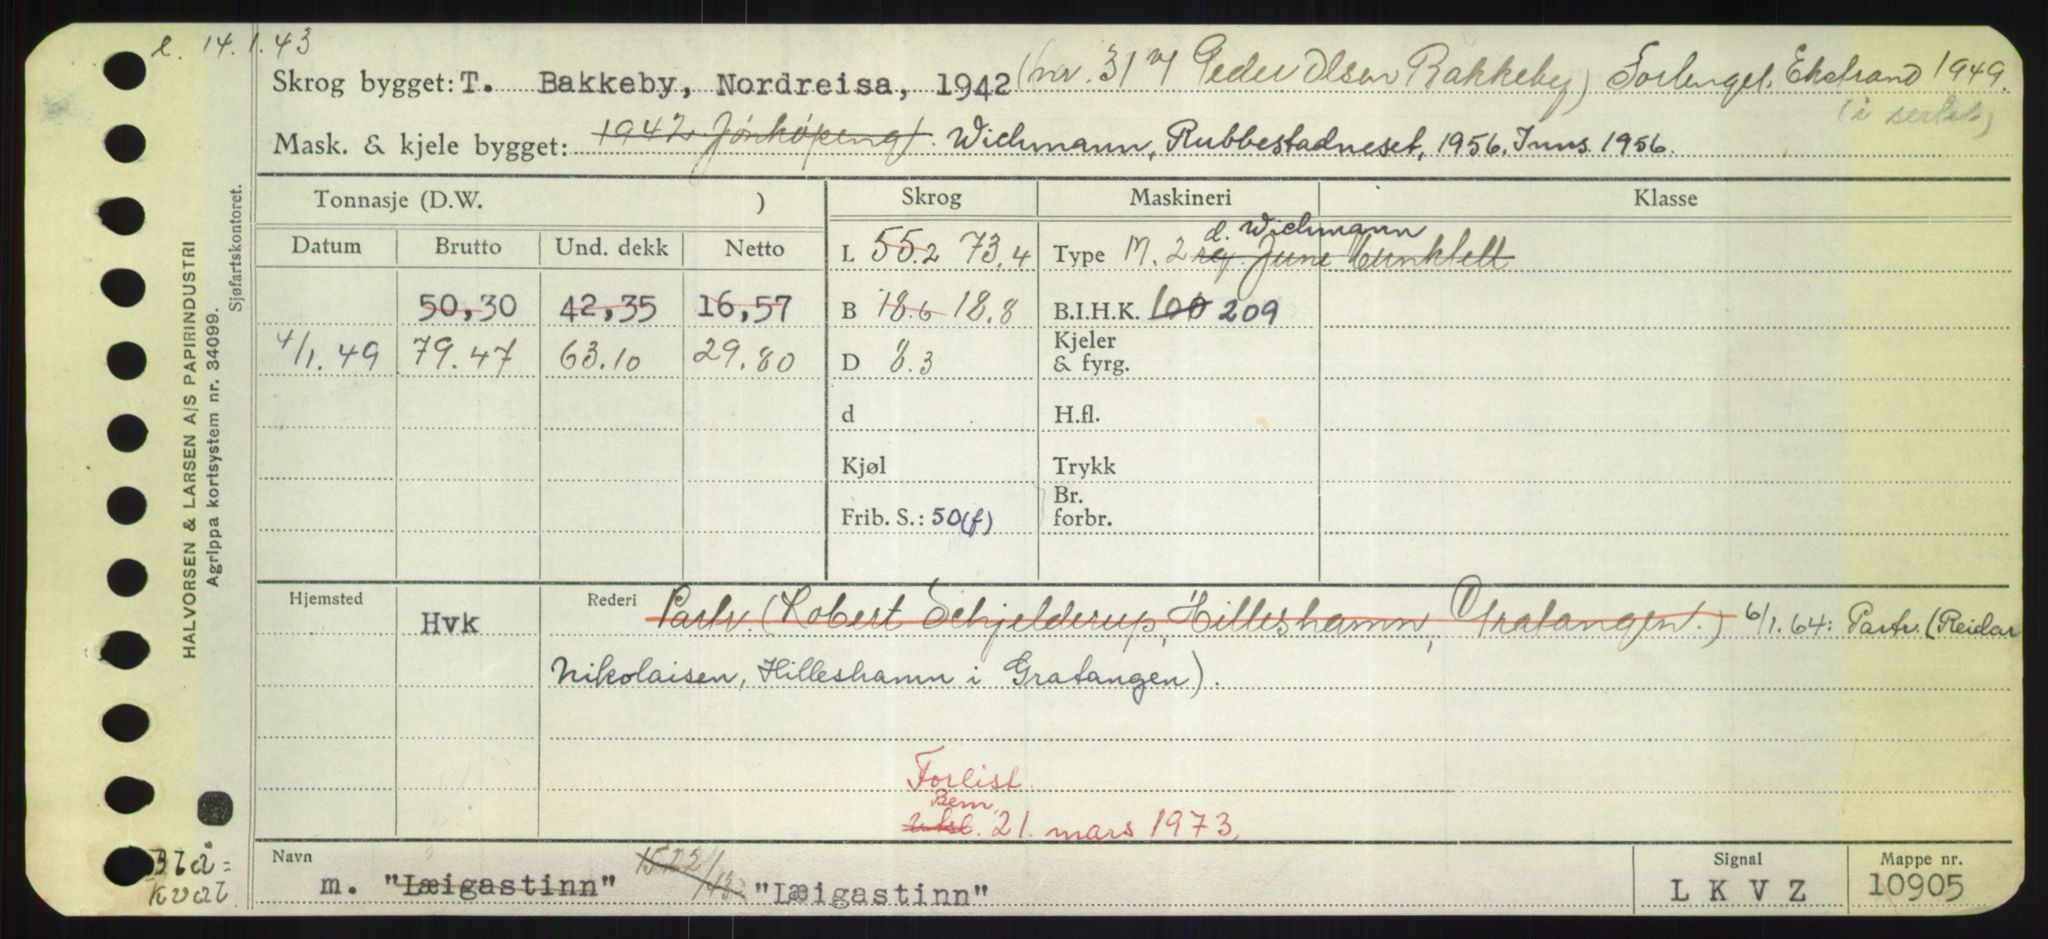 e. 14.1.43
Skrog bygget: T. Bakkeby, Nordreisa, 1942 (nr. 31 v/ Peder Olsen Bakkeby) Forlenget, Ekstrand 1949.
Mask. & kjele bygget: 1942 Jönköping). Wichmann, Rubbestadneset, 1956. Inns. 1956.
Tonnasje (D.W. ) Skrog Maskineri Klasse
Datum Brutto Und. dekk Netto L 55.2 73.4 Type M. 2 d. Wichmann June Munktell
50,30 42,35 16,57 B 18.6 18.8 B.I.H.K. 100 209
4/1.49 79.47 63.10 29.80 D 8.3 Kjeler & fyrg.
d H.fl.
Kjøl Trykk
Frib. S.: 50(f) Br. forbr.
Hjemsted Hvk Rederi Partr. (Robert Schjelderup, Hilleshamn, Gratangen.) 6/1.64: Partr. (Reidar
Nikolaisen, Hilleshamn i Gratangen).
Forlist.
Bem.
21. mars 1973
Navn Signal Mappe nr.
m. "Læigastinn" "Læigastinn" L K V Z 10905
Blå=
kval
HALVORSEN & LARSEN A/S PAPIRINDUSTRI
Agrippa kortsystem nr. 34099.
Sjøfartskontoret.